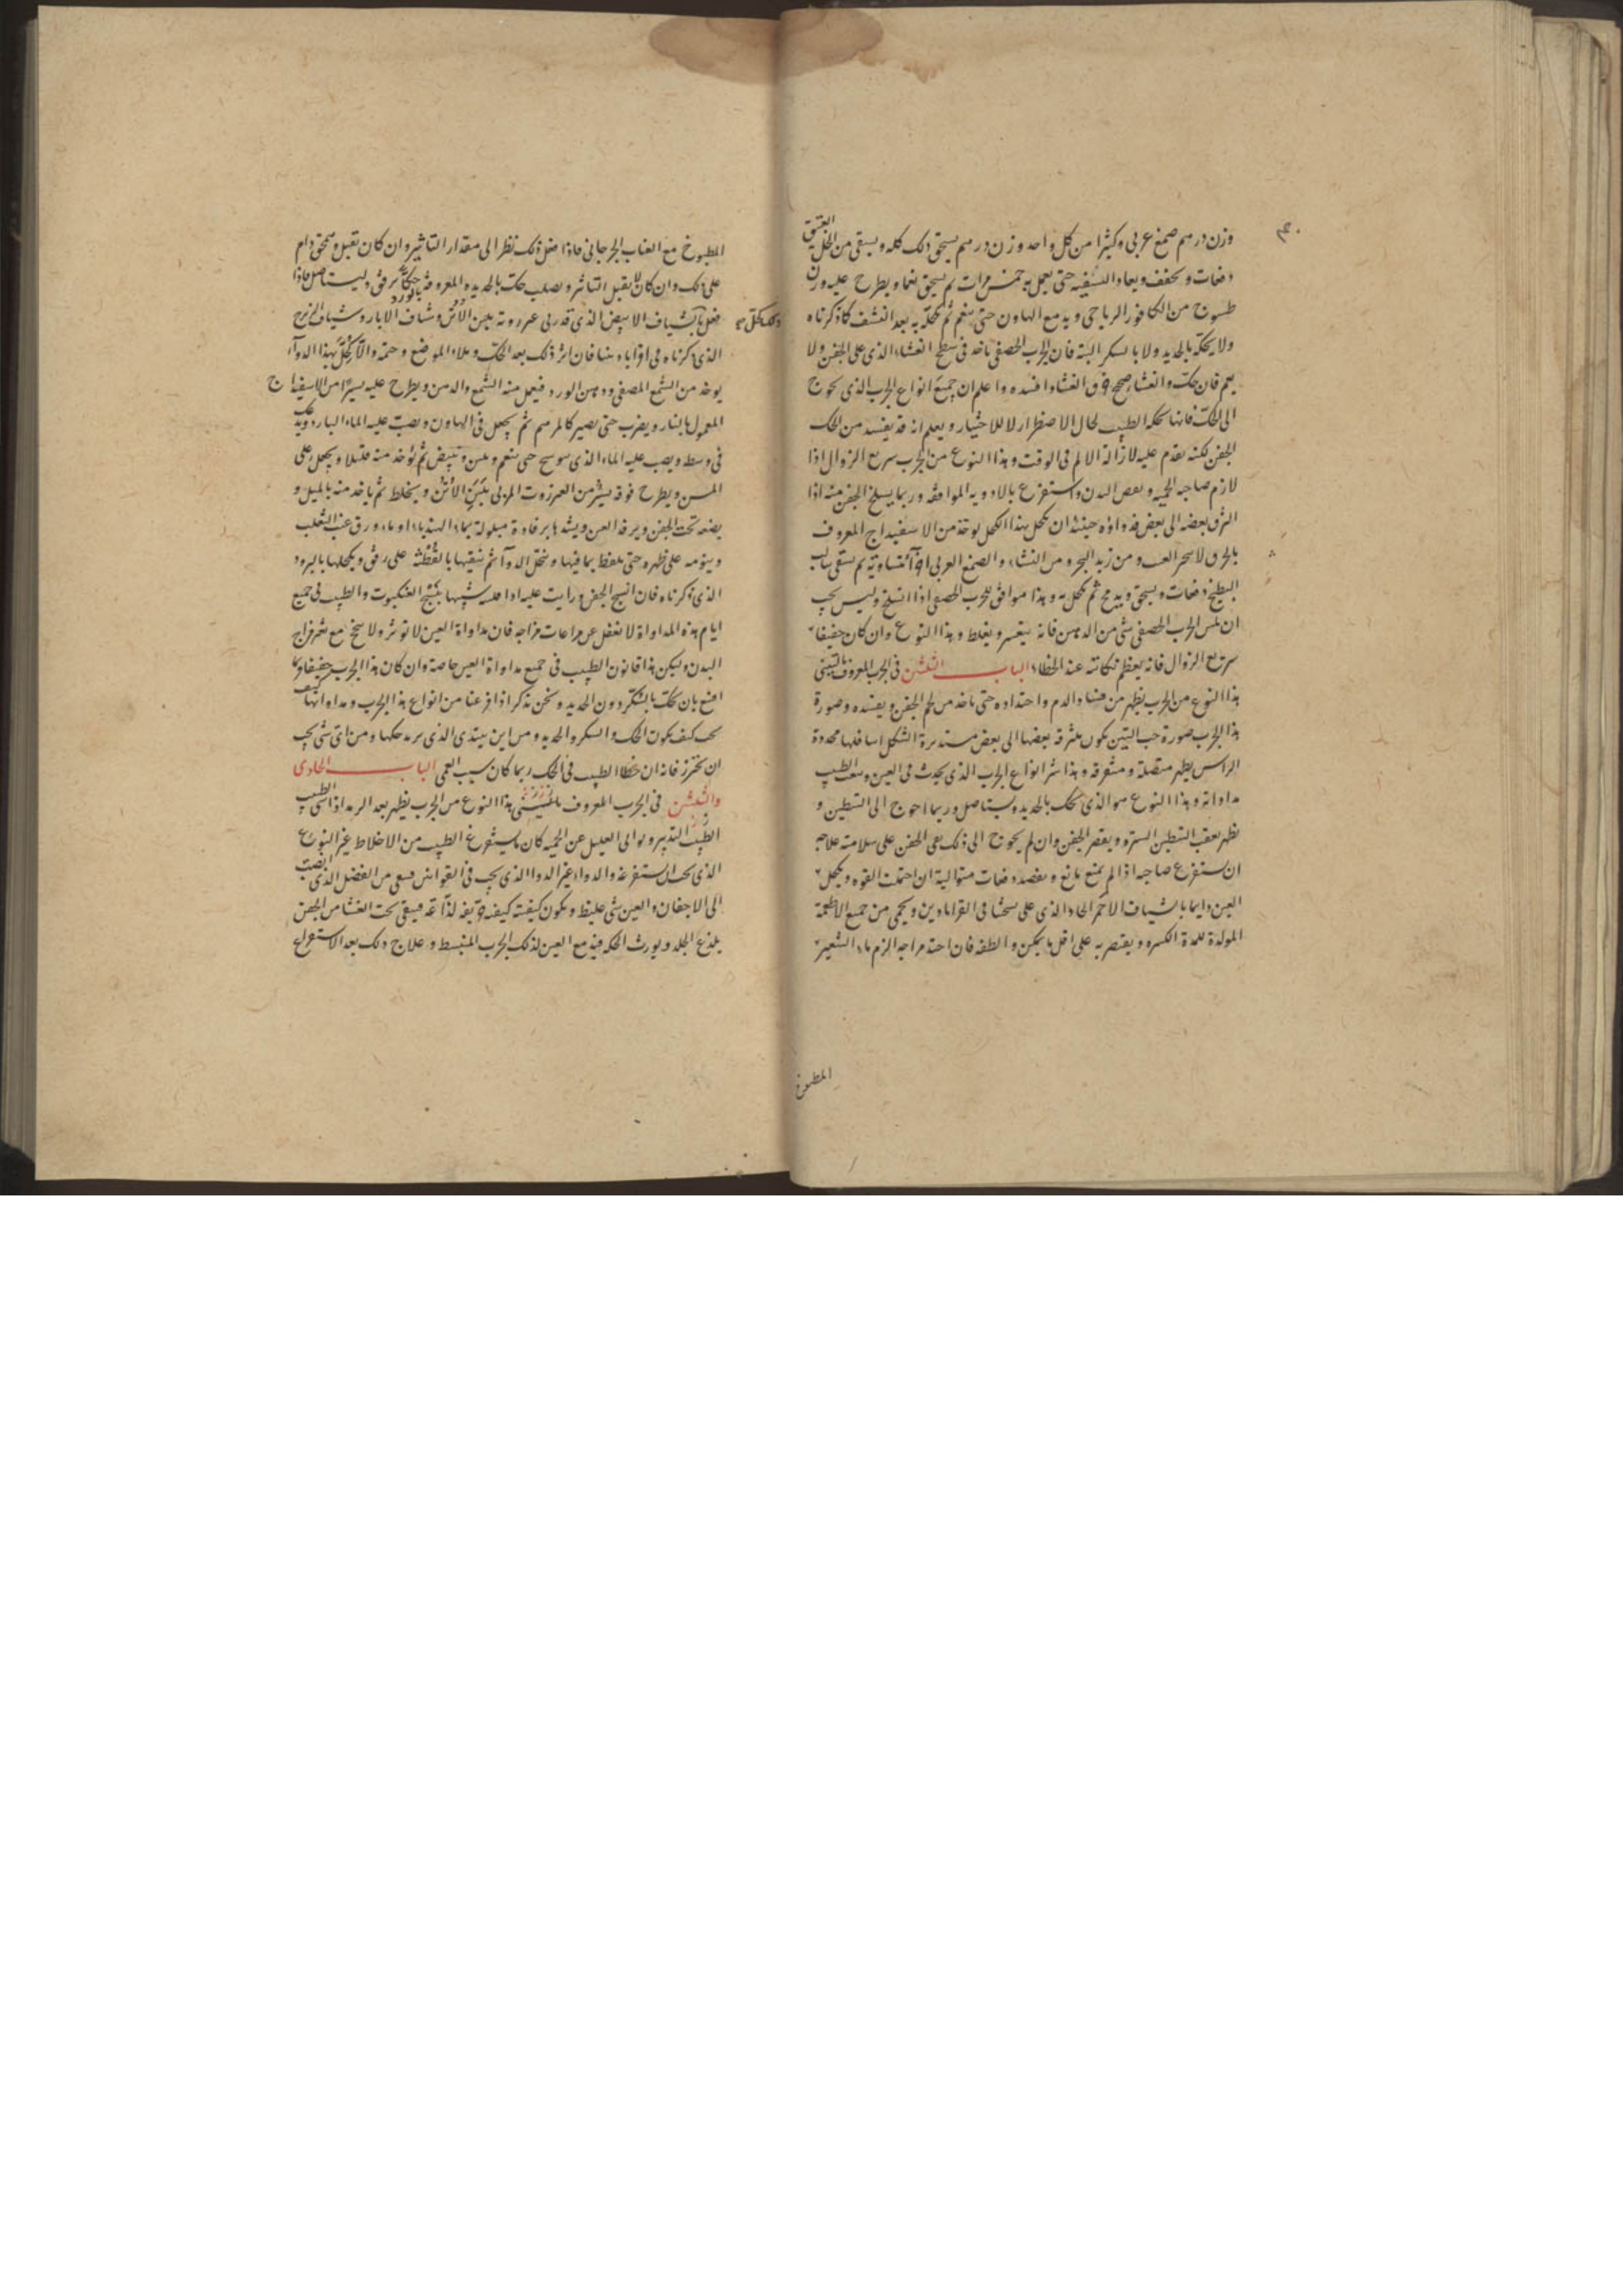 وزن درهم صمغ عربى وكثيرا من كل واحد وزن درهم يسحق ذلك كله ويسقى من الخل العتيق
دفعات ويجفف ويعاد التسقية حتى يعمل به خمس مرات ثم يسحق نعما ويطرح عليه وزن
طسوج من الكافور الرباحى ويدمع الهاون حتى ينعم ثم يكحله به بعد النشف كما ذكرناه
ولا يحكه بالحديد ولا بالسكر البتة فان الجرب الحصفى ياخذ فى سطح الغشاء الذى على الجفن ولا
فان حكت والغشاء صحيح الغشاء وافسده واعلم ان جميع انواع الجرب الذى يحوج
الى الحك فانها يحكه الطبيب لحال الاضطرار لا للاختيار ويعلم انه قد يفسد من الحك
الجفن لكنه يقدم عليه لازالة الالم فى الوقت وهذا النوع من الجرب سريع الزوال اذا
لازم صاحبه الحمية ونفض البدن واستفرغ بالادوية الموافقة وربما ينسلخ الجفن منه اذا
التزق بعضه الى بعض فدواؤه حينئذ ان يكحل بهذا الكحل يوخذ من الاسفيداج المعروف
ومن زبد البحر ومن النشاء والصمغ العربى اجزاء متساوية ثم يسقى
البطيخ دفعات ويسحق ثم يكحل به وهذا موافق للجرب الحصفى اذا انسلخ وليس يجب
ان يلمس الجرب الحصفى شئ من الدهن فانه يتعسر ويغلظ وهذا النوع وان كان خفيفا
سريع الزوال فانه يعظم نكايته عند الخطاء الباب الثلثين فى الجرب المعروف بالتينى
هذا النوع من الجرب يظهر من فساد الدم واحتداده حتى ياخذ من لحم الجفن ويفسده وصورة
هذا الجرب صورة حب التين يكون ملتزقة بعضها الى بعض مستديرة الشكل اسافلها محدودة
الراس يظهر متصلة ومتفرقة وهذا شر انواع الجرب الذى يحدث فى العين الطبيب
مداواته وهذا النوع هو الذى يحك بالحديد ويستاصل وربما احوج الى التبطين و
يظهر بعقب التبطين الشترة ويقصر الجفن وان لم يحوج الى ذلك بقى الجفن على سلامته علاجه
ان يستفرغ صاحبه اذا لم يمنع مانع ويفصد دفعات متوالية ان احتملت القوة ويكحل
العين دايما بالشياف الاحمر الحاد الذى على نسختنا فى القراباذين ويحمى من جميع الاطعمة
المولدة للمدة الكثيرة ويقتصر به على اقل ما يمكن والطفه فان احتد مزاجه الزم ماء الشعير
المطبوخ
المطبوخ مع العناب الجرجانى فاذا فعل ذلك نظر الى مقدار التاثير وان كان يقبل دام
على ذلك وان كان لا يقبل التاثير ويصلب حكت بالحديدة المعروفة بالورد حكا برفق وليستاصل فاذا
فعل ذلك كحل بالشياف الابيض الذى قد ربى عنزروته بلبن الاتن وشياف الابار وشياف
الذى ذكرناه فى اقراباذيننا فان اثر ذلك بعد الحك وملاء الموضع والا كحل بهذا الدواء
يوخذ من الشمع المصفى ودهن الورد فيعمل منه الشمع والدهن ويطرح عليه يسيرا من الاسفيداج
المعمول بالنار ويضرب حتى يصير كالمرهم ثم يجعل فى الهاون ويصب عليه الماء البارد
فى وسط ويصب عليه الماء الذى حتى ينعم ويلين ويبيض ثم يوخذ منه قليلا ويجعل على
المسن ويطرح فوقه يسير من العنزروت المربى بلبن الاتن ويخلط ثم ياخذ منه بالميل و
يضعه تحت الجفن ويرفد العين ويشدها برفادة مبلولة بماء الهندباء او ماء ورق عنب الثعلب
وينومه على ظهره حتى يلفظ بما فيها وينحل الدواء ثم ينقيها بالقطنة على رفق ويكحلها بالبرود
الذى ذكرناه فان انسبج الجفن ورايت عليه شبيها بنسج العنكبوت والطبيب فى جميع
ايام هذه المداواة لا يغفل عن مراعات مزاجه فان مداواة العين لا توثر ولا تنجح مع تغير مزاج
البدن وليكن هذا قانون الطبيب فى جميع مداواة العين خاصة وان كان هذا الجرب خفيفا
اقنع بان يحك بالسكر دون الحديد ونحن نذكر اذا فرغنا من انواع هذا الجرب ومداواتها
كيف يكون الحك والسكر والحديد ومن اين يبتدى الذى يريد حكها ومن اى شئ يجب
ان يحترز فانه ان خطا الطبيب فى الحك ربما كان سبب العمى الباب الحادى
والثلثين فى الجرب المعروف هذا النوع من الجرب يظهر بعد الرمد اذا الطبيب
التدبير العليل عن الحمية كان ما يستفرغ الطبيب من الاخلاط غير النوع
الذى يجب ان يستفرغه والدواء غير الدواء الذى يجب فى القوانين فيبقى من الفضل الذى انصب
الى الاجفان والعين شئ غليظ ويكون كيفيته كيفية لذاعة فيبقى تحت الغشاء من الجفن
يلذع الجلد ويورث الحكة فيدمع العين لذلك الجرب المنبسط وعلاج ذلك بعد الاستفراغ